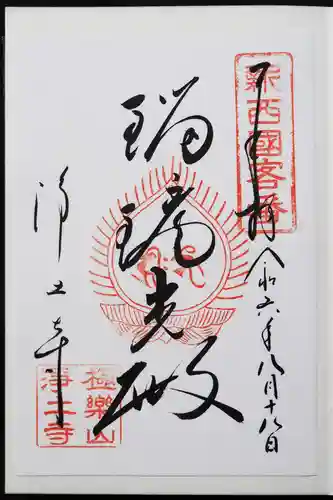 新西國客番
奉拝
令和六年八月十八日
瑠璃光殿
浄土寺
極樂山
浄土寺